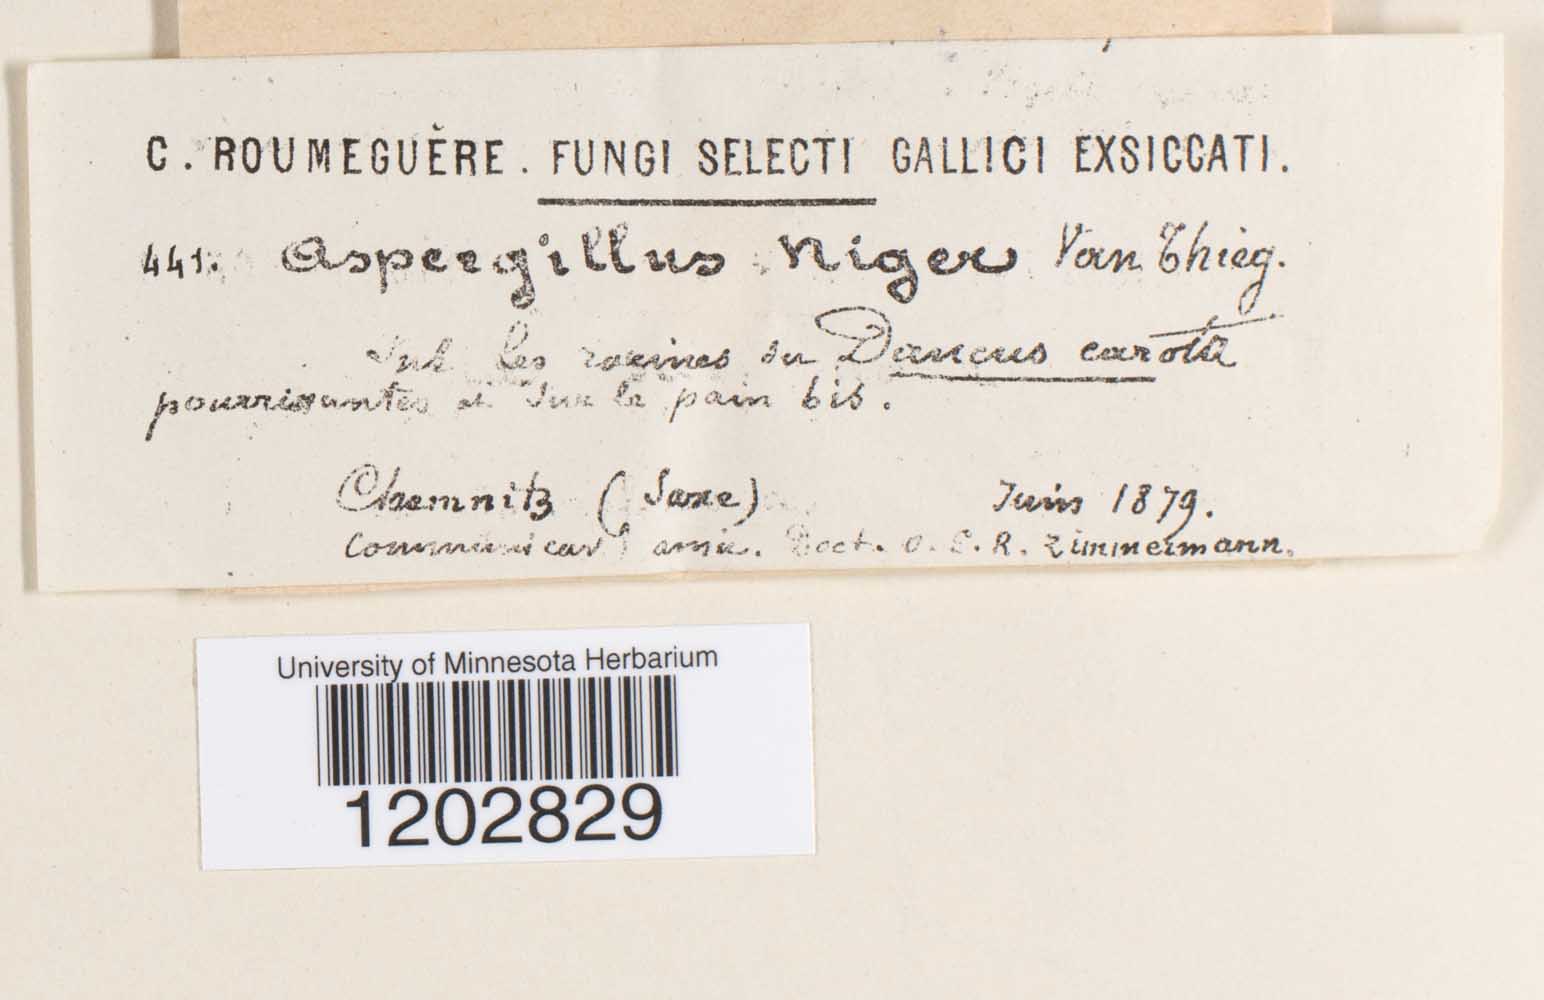 C. ROUMEGUÈRE. FUNGI SELECTI GALLICI EXSICCATI.
441. Aspergillus Niger Van Thieg.
Sur les racines du Daucus carota
pourrissantes et sur le pain bis.
Chemnitz (Saxe) Juin 1879.
communicav amic. Doct. O. E. R. Zimmermann.
University of Minnesota Herbarium
1202829